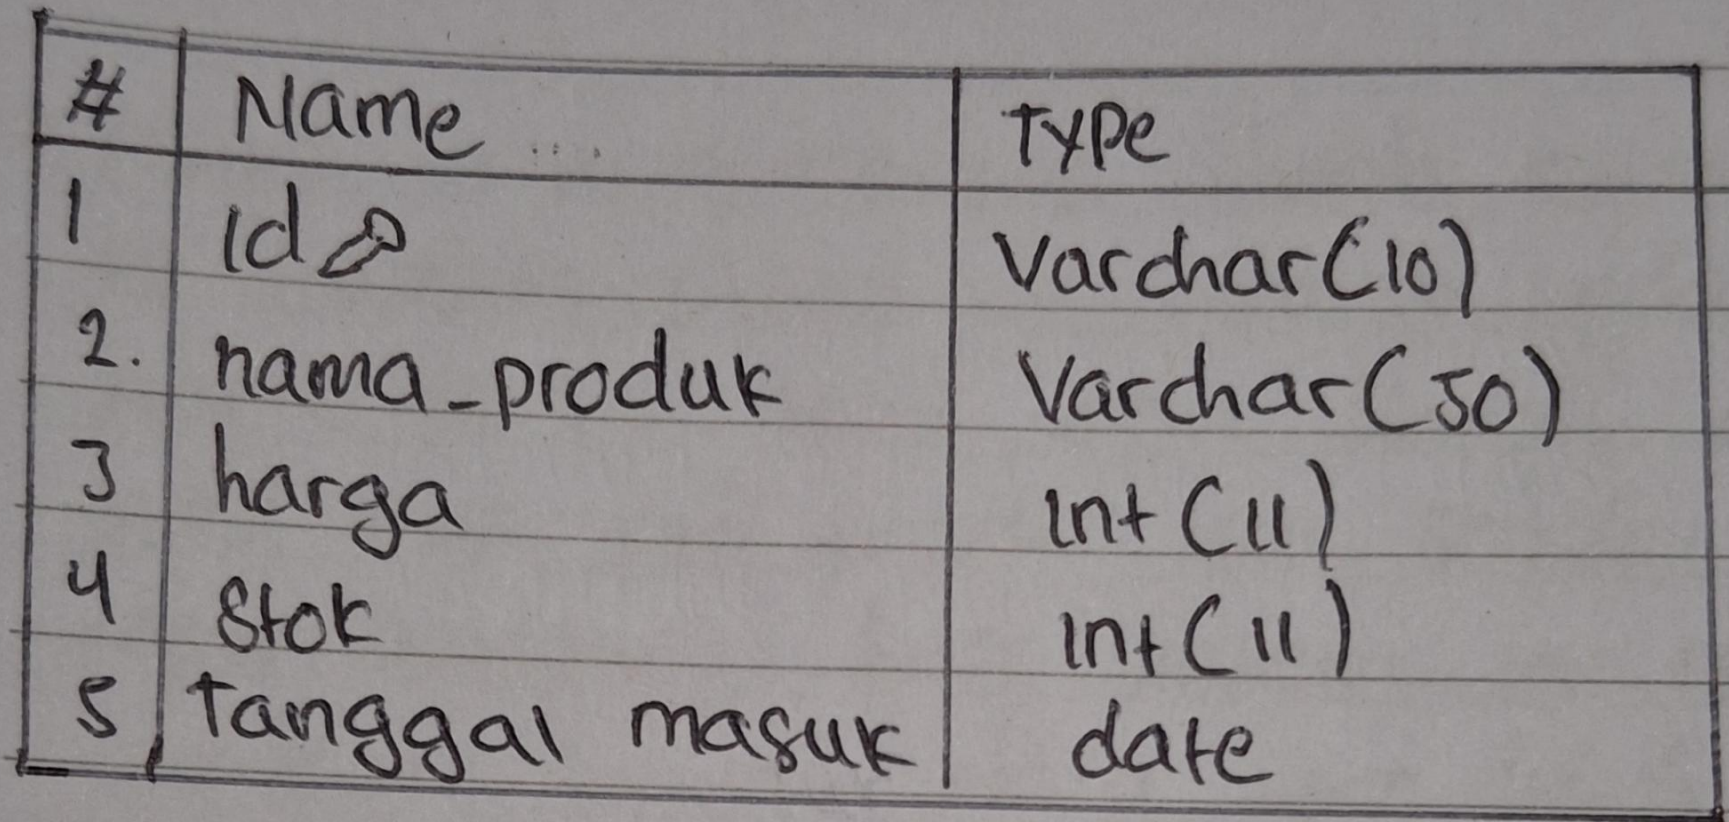 # Name Type
1 id Varchar(10)
2. nama_produk Varchar(50)
3 harga int(11)
4 Stok int(11)
5 Tanggal masuk date